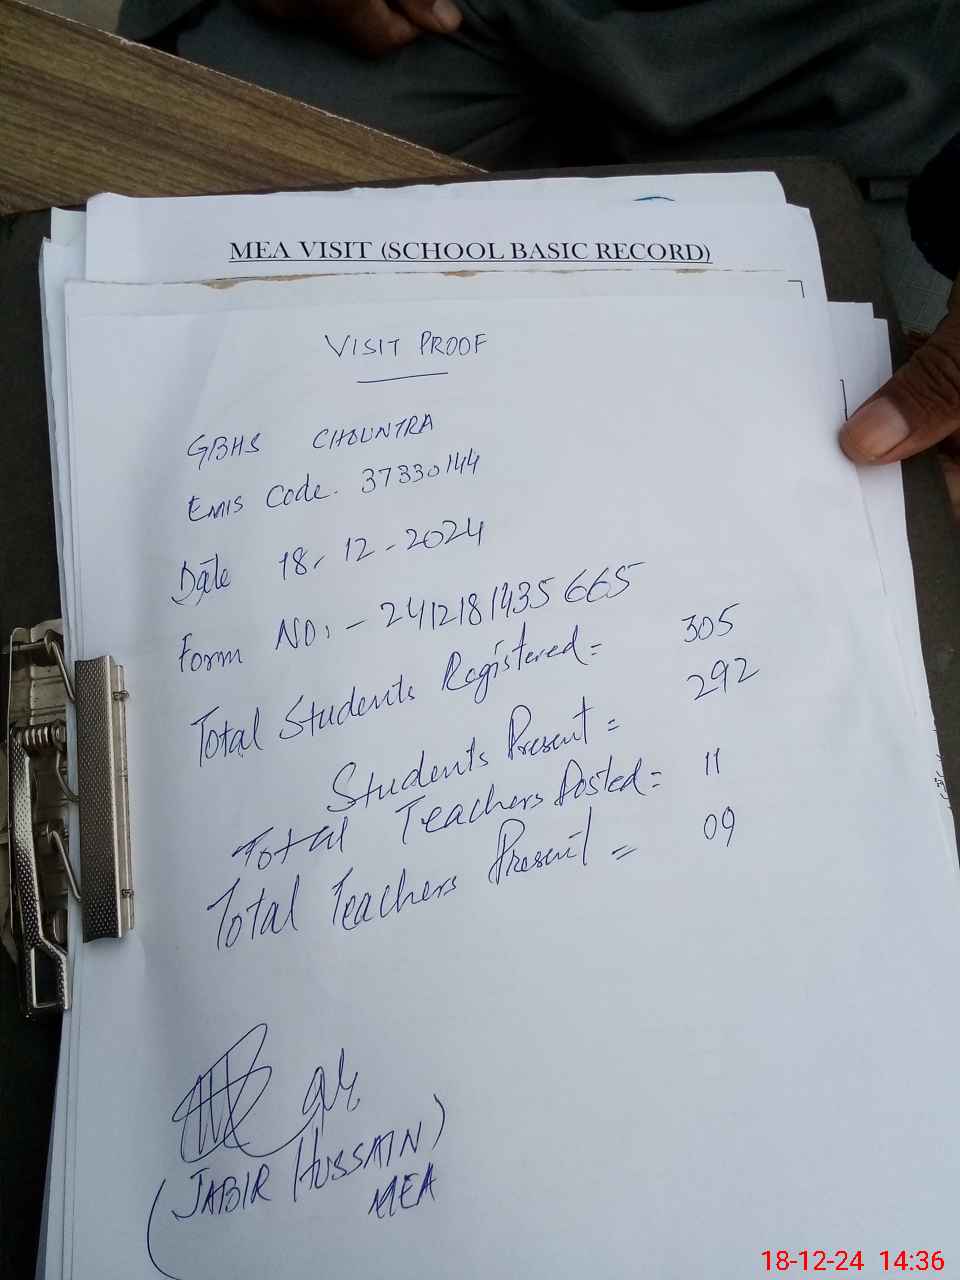 MEA VISIT (SCHOOL BASIC RECORD)
VISIT PROOF
GBHS CHOUNTRA
Emis Code. 37330144
Date 18-12-2024
Form NO:- 2412181435665
Total Students Registered= 305
Students Present = 292
Total Teachers Posted= 11
Total Teachers Present = 09
(JABIR HUSSAIN)
MEA
18-12-24 14:36